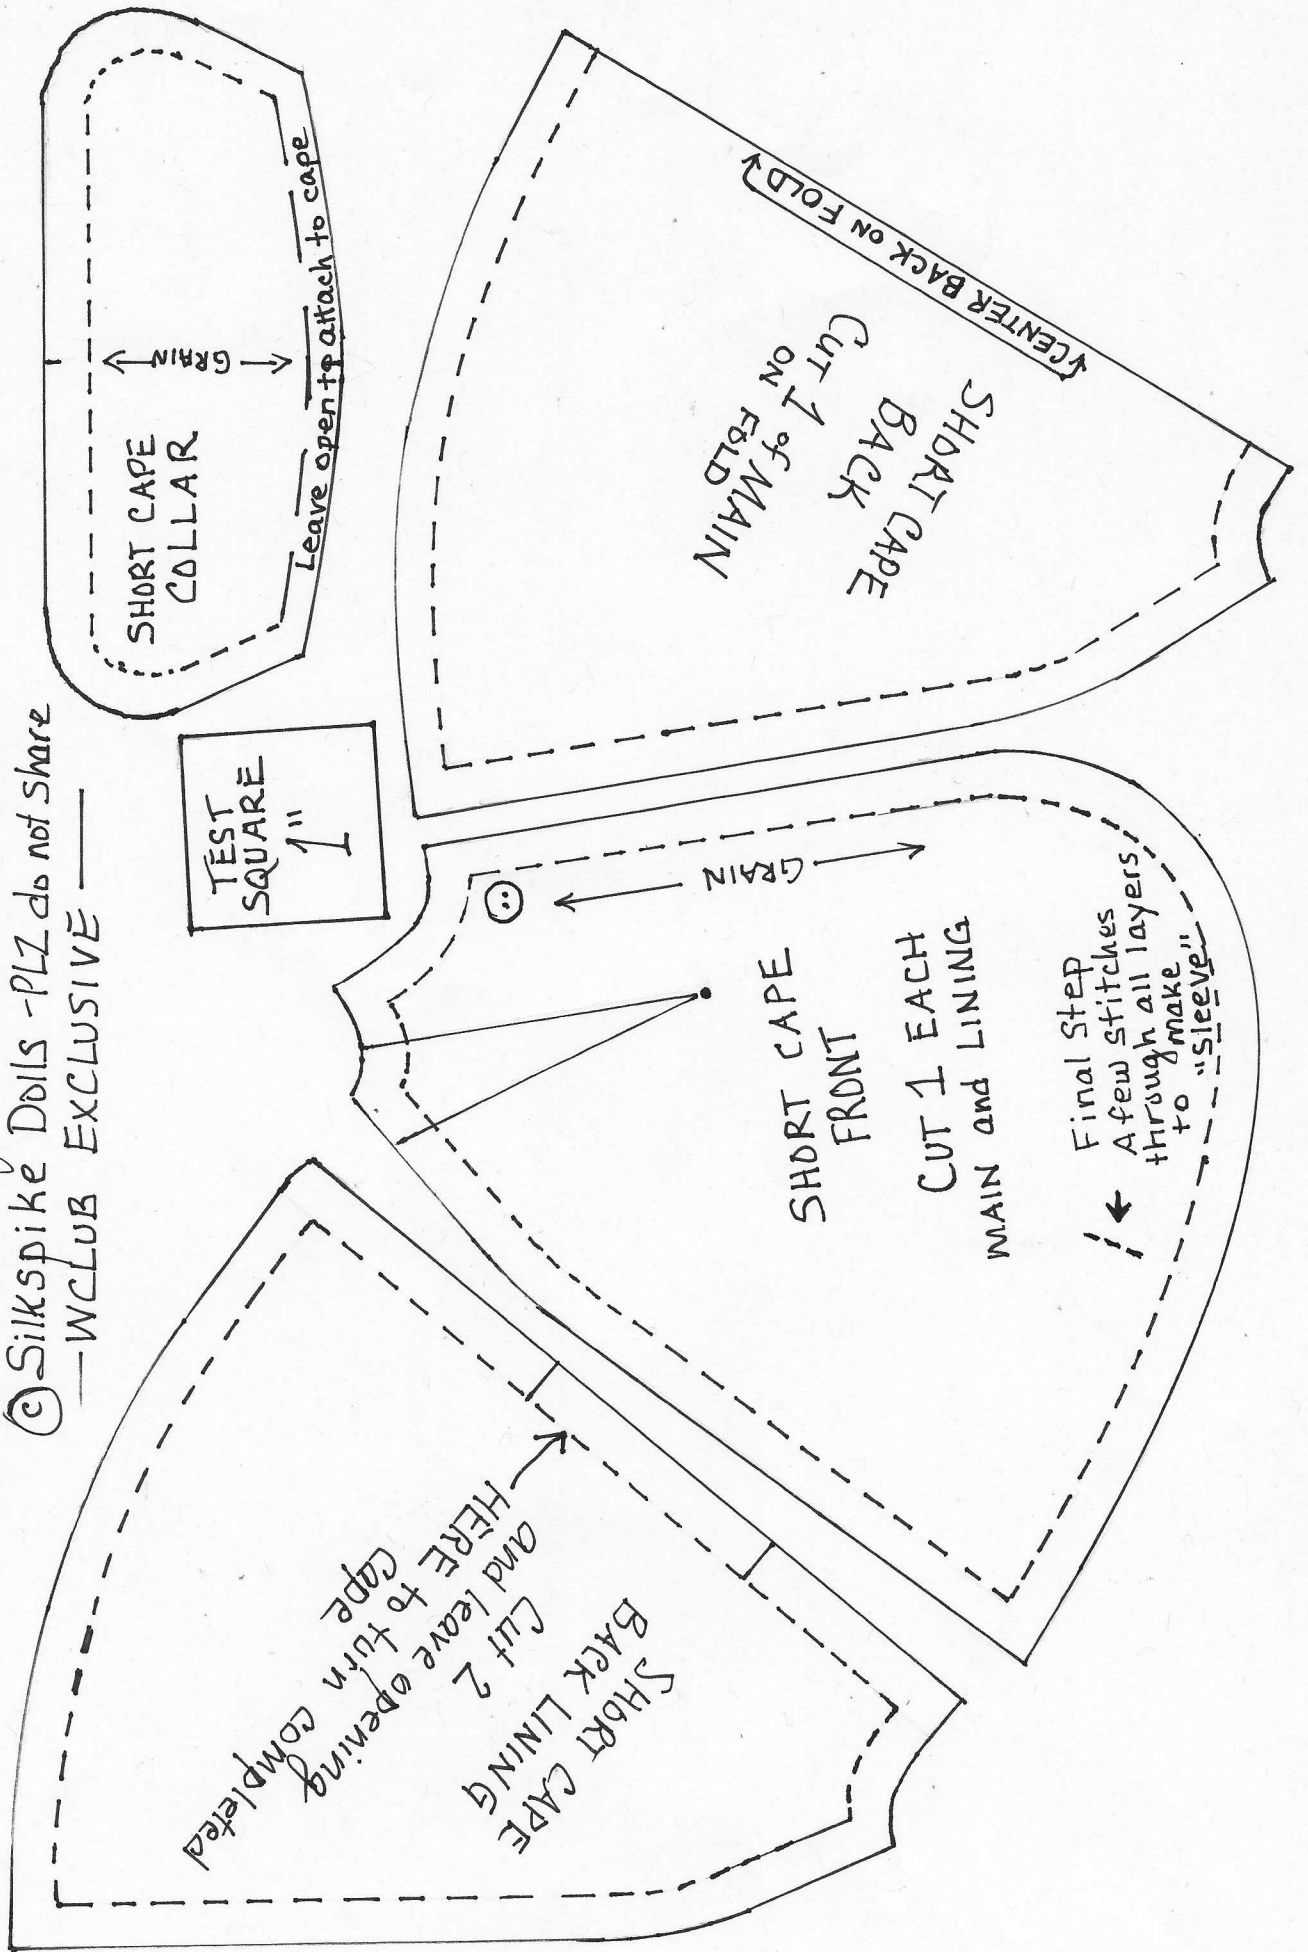 ©Silkspike Dolls - PLZ do not share
— WCLUB EXCLUSIVE —
TEST
SQUARE
1"
SHORT CAPE
COLLAR
GRAIN
Leave open to attach to cape
CENTER BACK ON FOLD
SHORT CAPE
BACK
CUT 1 of MAIN
ON FOLD
GRAIN
SHORT CAPE
FRONT
CUT 1 EACH
MAIN and LINING
Final Step
A few stitches
through all layers
to make
"sleeve"
SHORT CAPE
BACK LINING
Cut 2
and leave opening
HERE to turn completed
cape